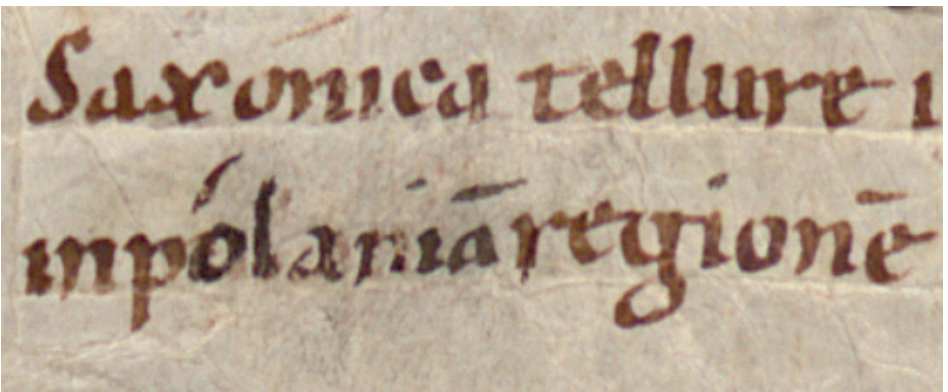 Saxonica tellure i
inpólaniā regionē